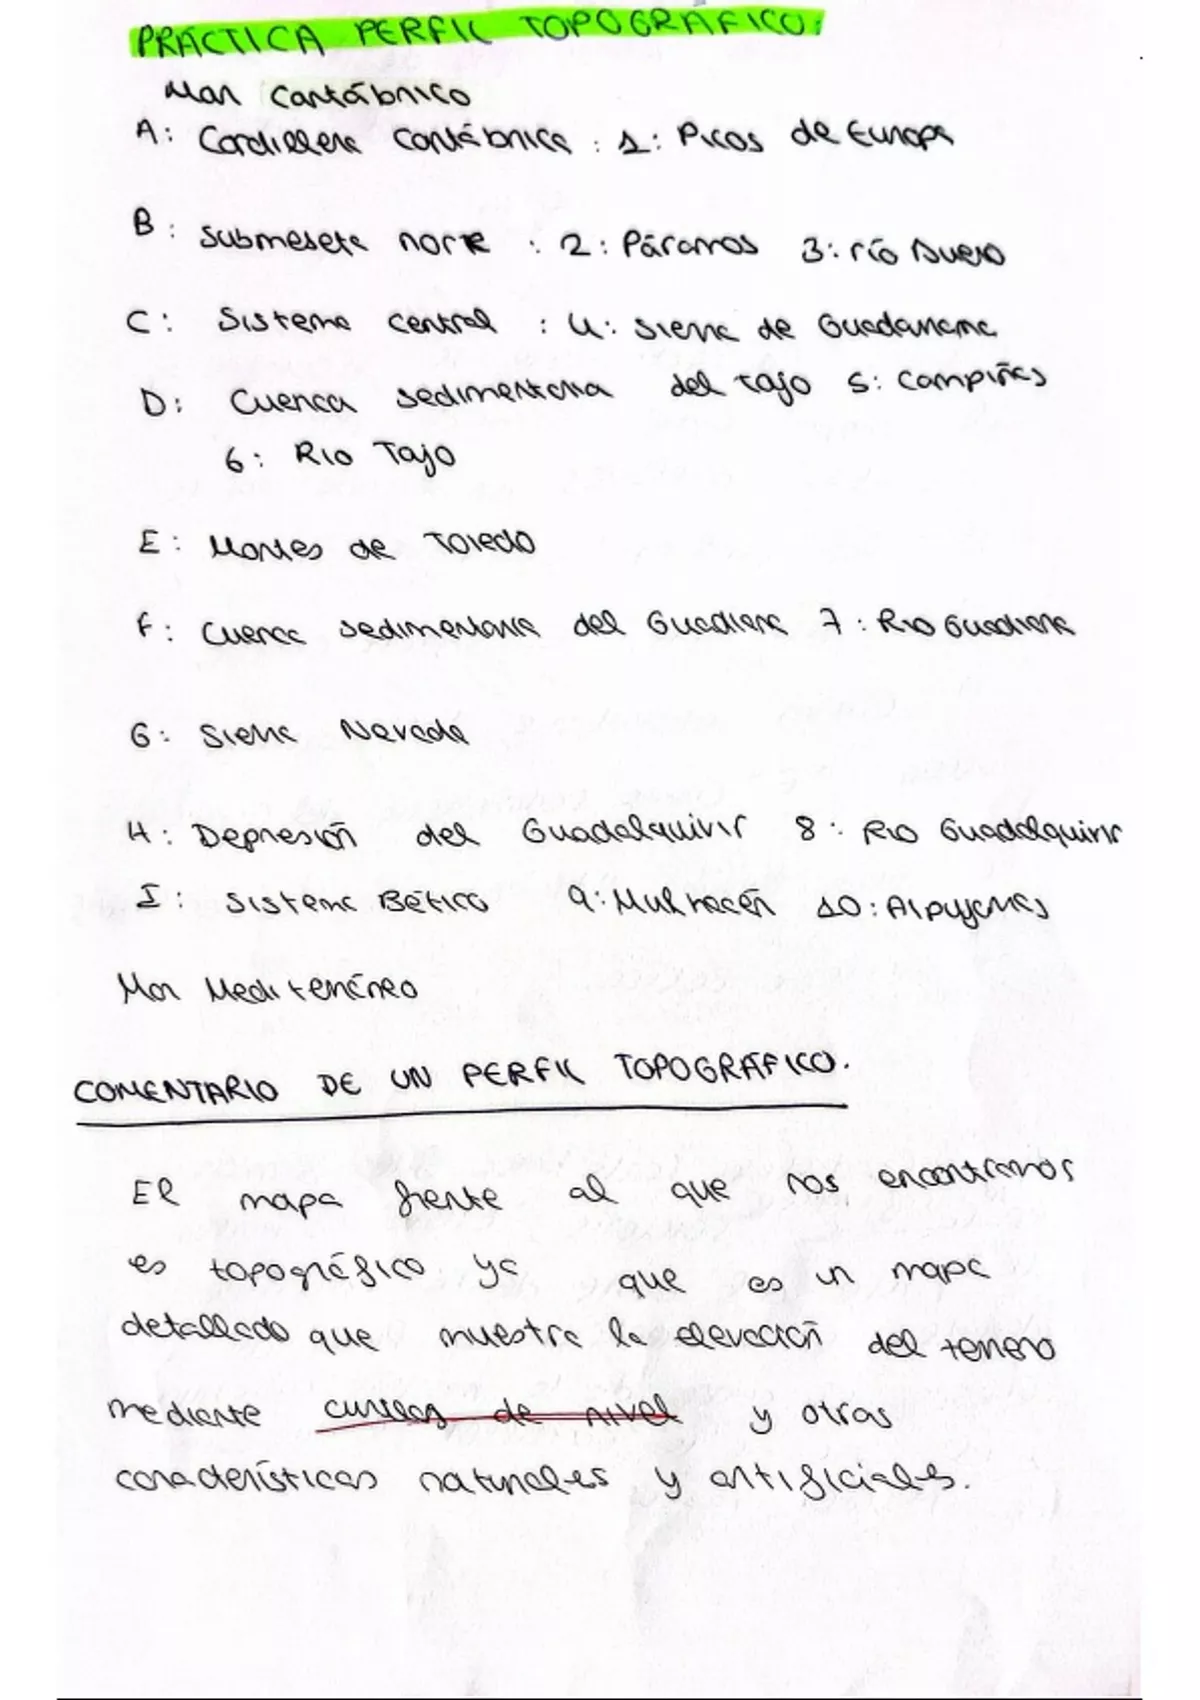 PRÁCTICA PERFIL TOPOGRÁFICO:
Mar Cantábrico
A: Cordillera Cantábrica : 1: Picos de Europa
B: Submeseta norte : 2: Páramos 3: río Duero
C: Sistema Central : 4: Sierra de Guadarrama
D: Cuenca sedimentaria del tajo 5: Campiñas
6: Río Tajo
E: Montes de Toledo
F: Cuenca sedimentaria del Guadiana 7: Río Guadiana
G: Sierra Nevada
H: Depresión del Guadalquivir 8: Río Guadalquivir
I: Sistema Bético 9: Mulhacén 10: Alpujarras
Mar Mediterráneo
COMENTARIO DE UN PERFIL TOPOGRÁFICO.
El mapa frente al que nos encontramos
es topográfico ya que es un mapa
detallado que muestra la elevación del terreno
mediante curvas de nivel y otras
características naturales y artificiales.